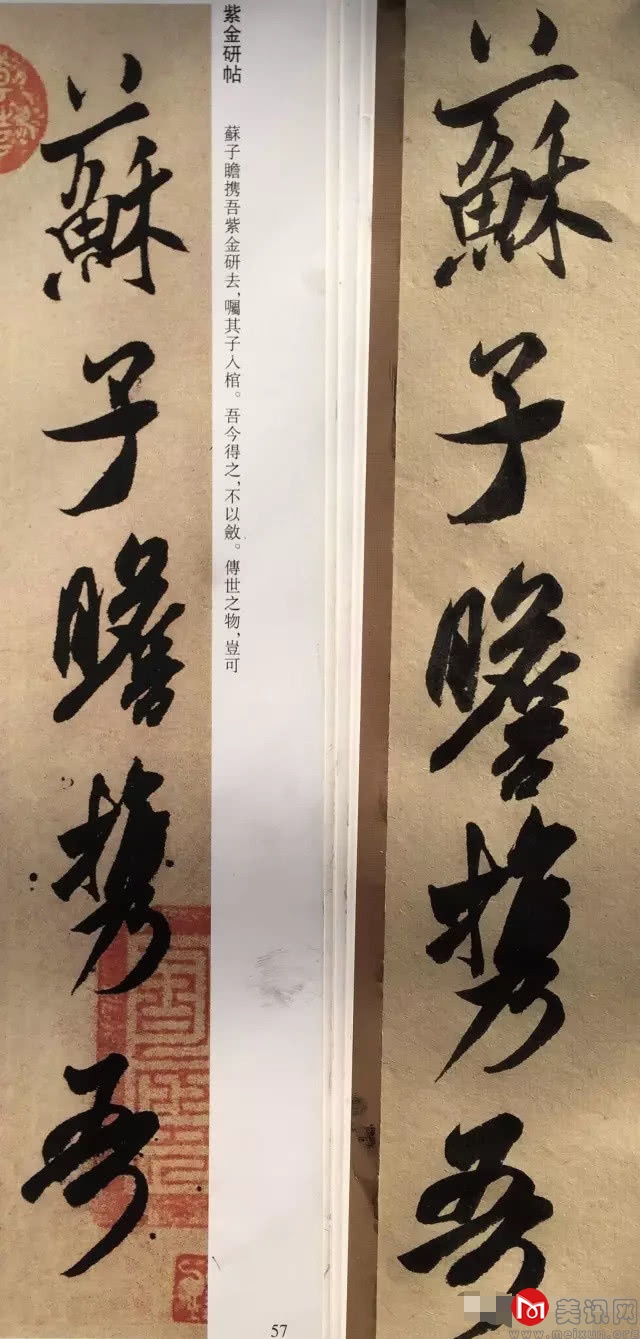 蘇子瞻携吾
紫金研帖
蘇子瞻携吾紫金研去，囑其子入棺。吾今得之，不以斂。傳世之物，豈可
57
蘇子瞻携吾
美讯网
www.meixun.cn